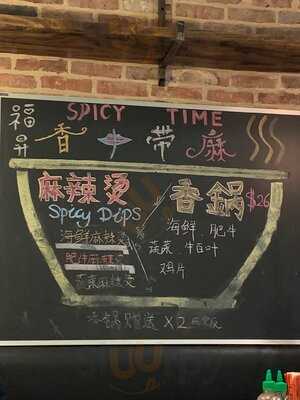 SPICY TIME
福昇
香中带麻
麻辣烫
Spicy Dips
海鲜麻辣烫
肥牛麻辣烫
蔬菜麻辣烫
香锅 $26
海鲜、肥牛
蔬菜、牛百叶
鸡片
香锅赠送 X2